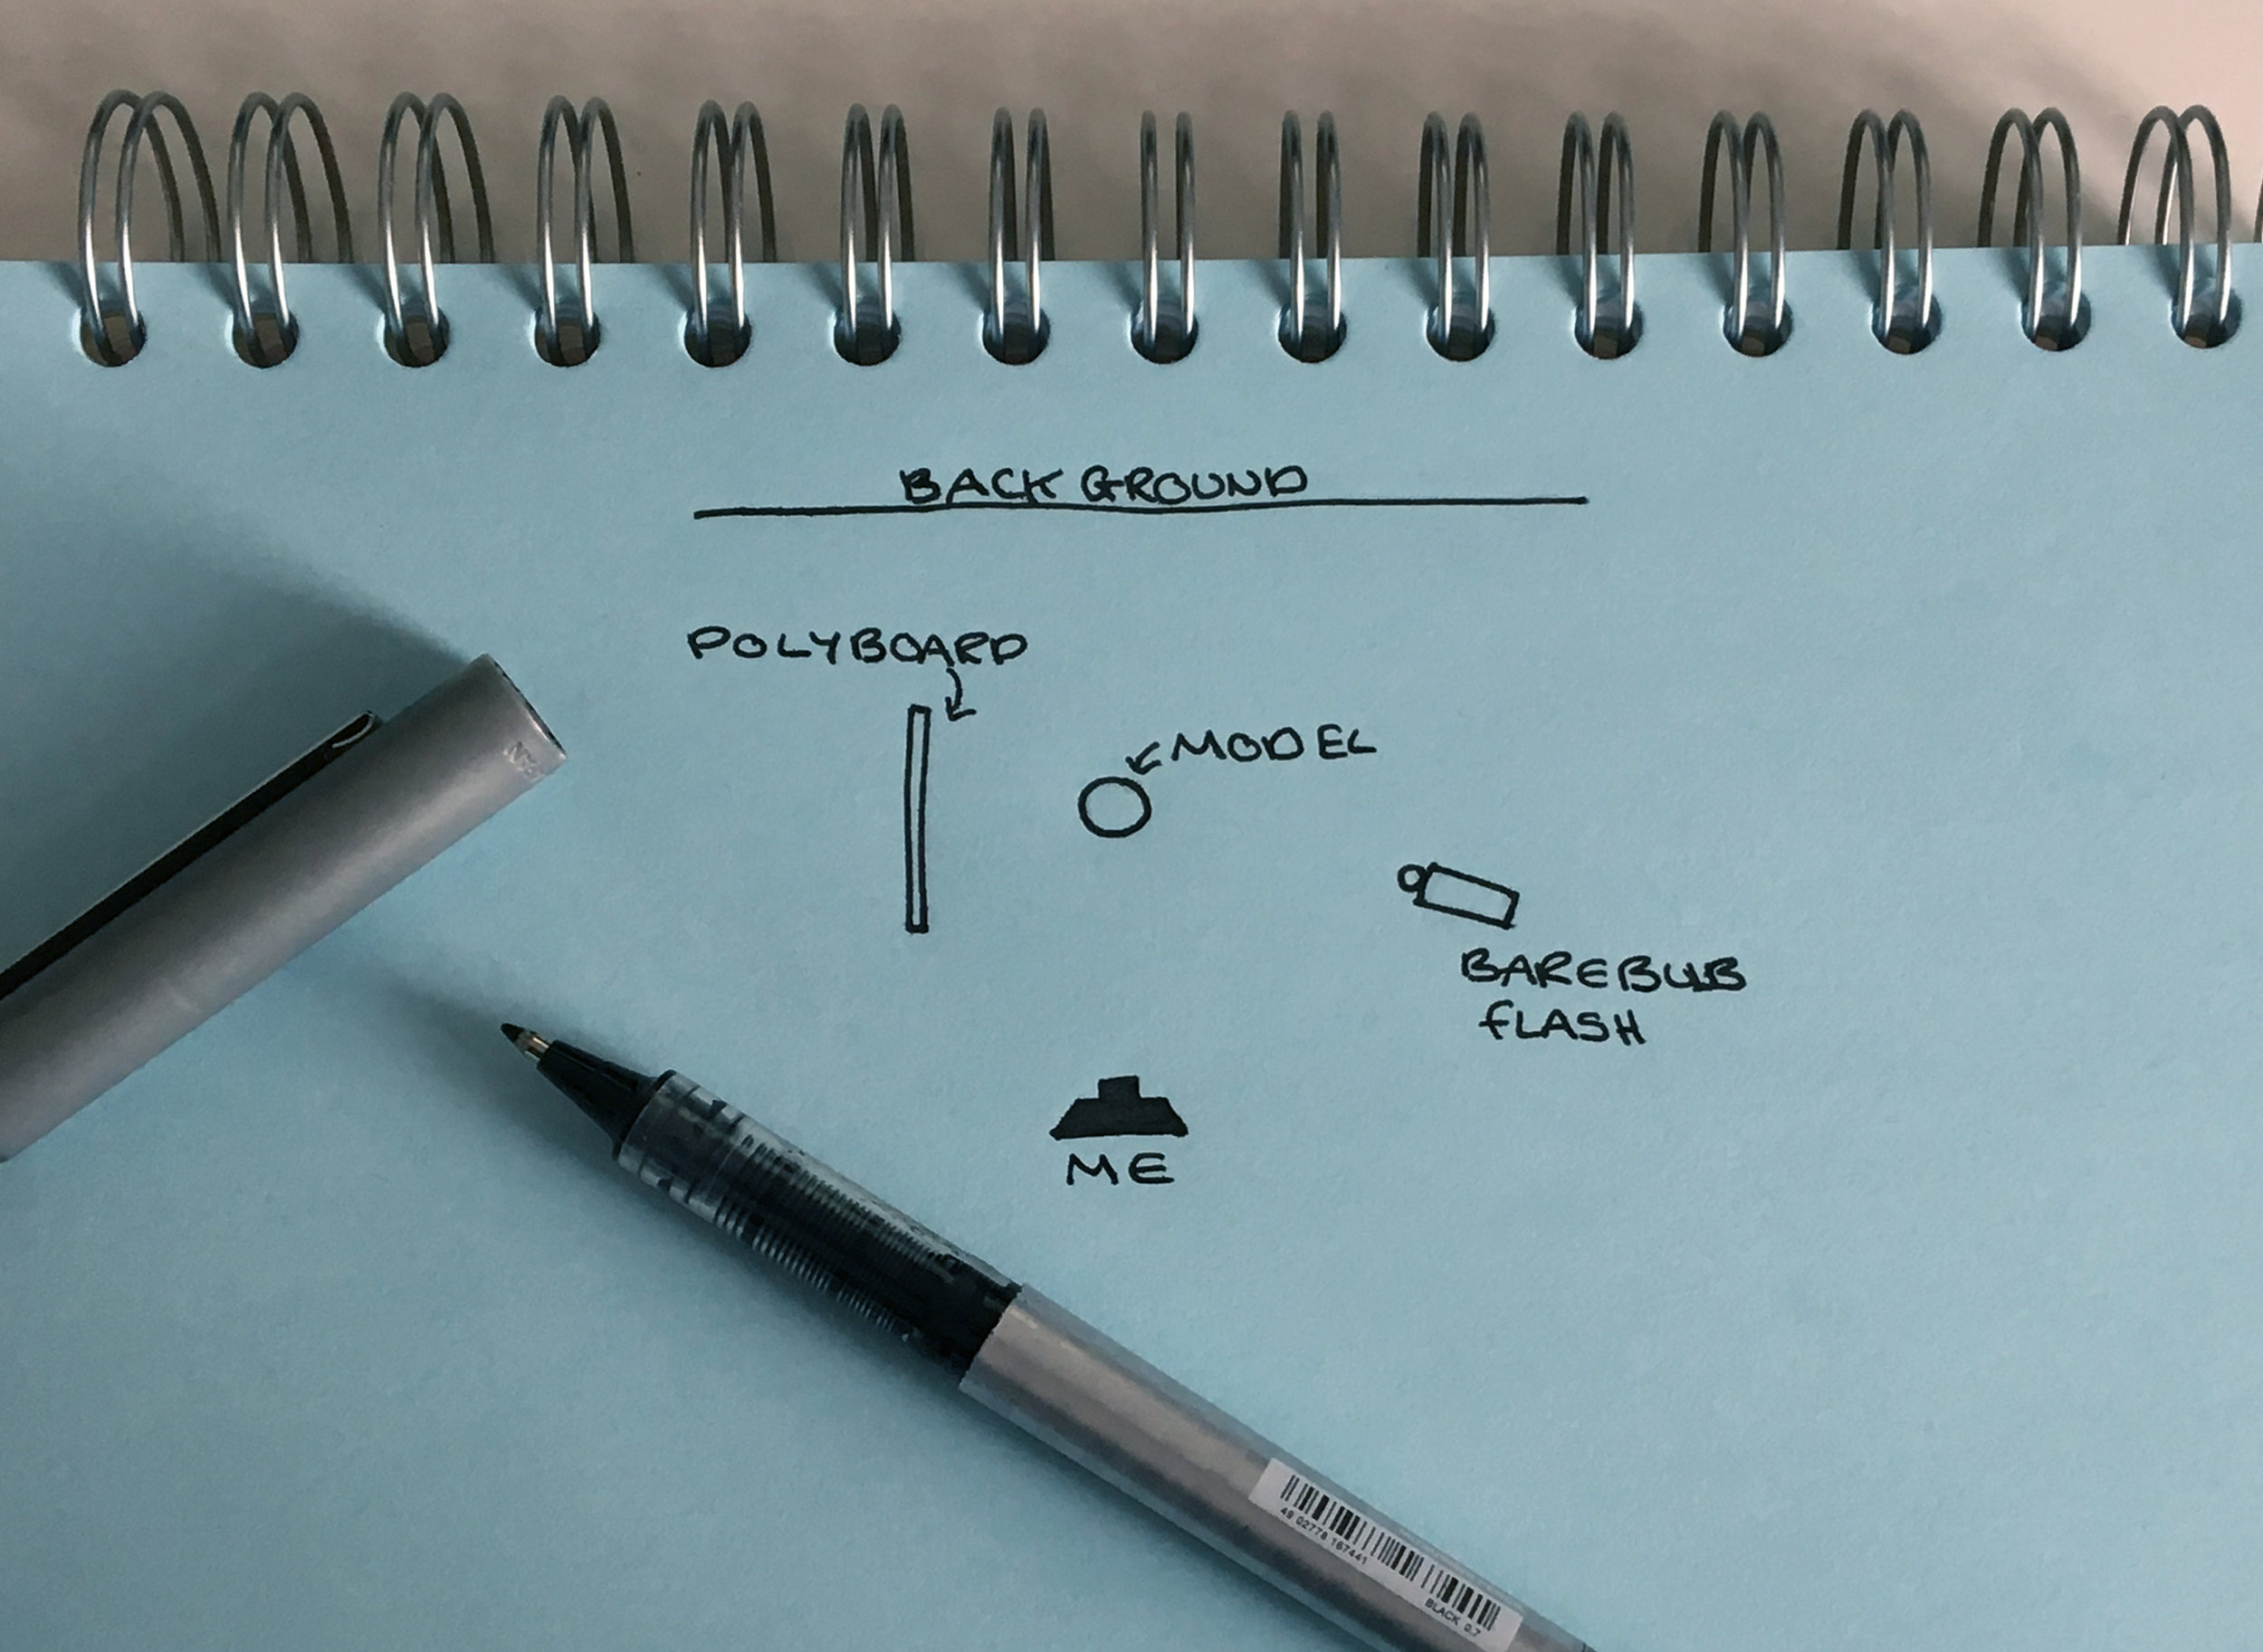 BACKGROUND
POLYBOARD
MODEL
BAREBULB
FLASH
ME
49 02778 167441
BLACK 0.7